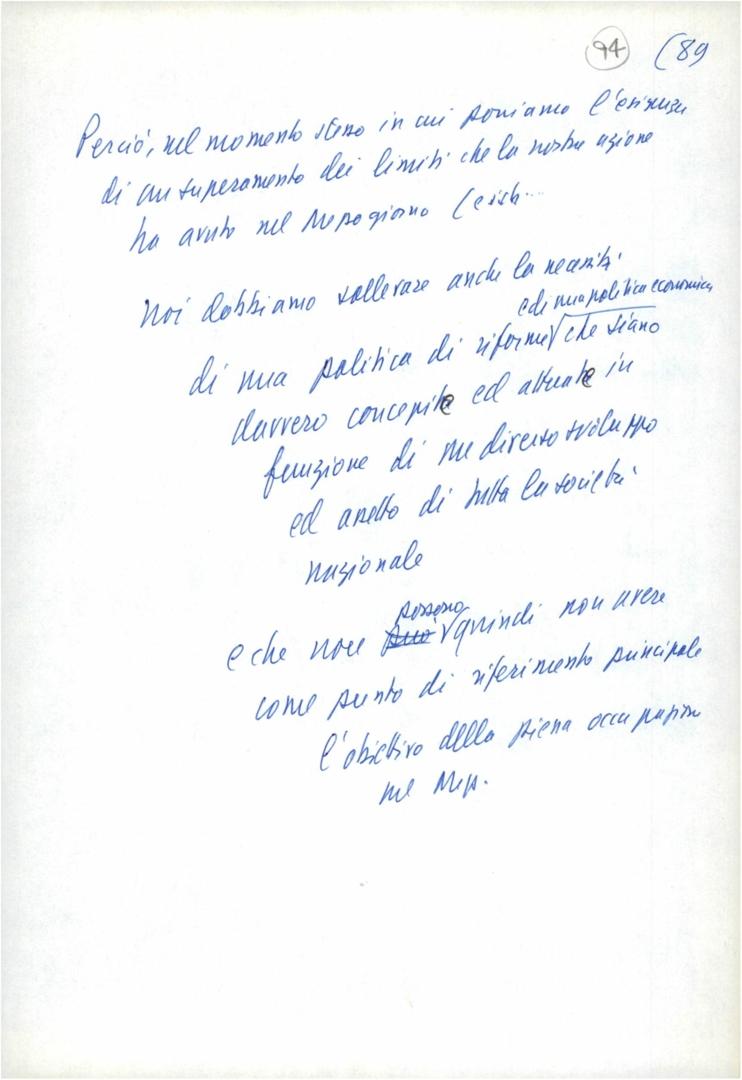 94 (89
Perciò, nel momento stesso in cui poniamo l'esigenza
di un superamento dei limiti che la nostra azione
ha avuto nel Mezzogiorno (
Noi dobbiamo sollevare anche la necessità
e di una politica economica
di una politica di riforme √ che siano
davvero concepite ed attuate in
funzione di un diverso sviluppo
ed assetto di tutta la società
nazionale
possono
e che non può √ quindi non avere
come punto di riferimento principale
l'obiettivo della piena occupazione
nel Mezz.